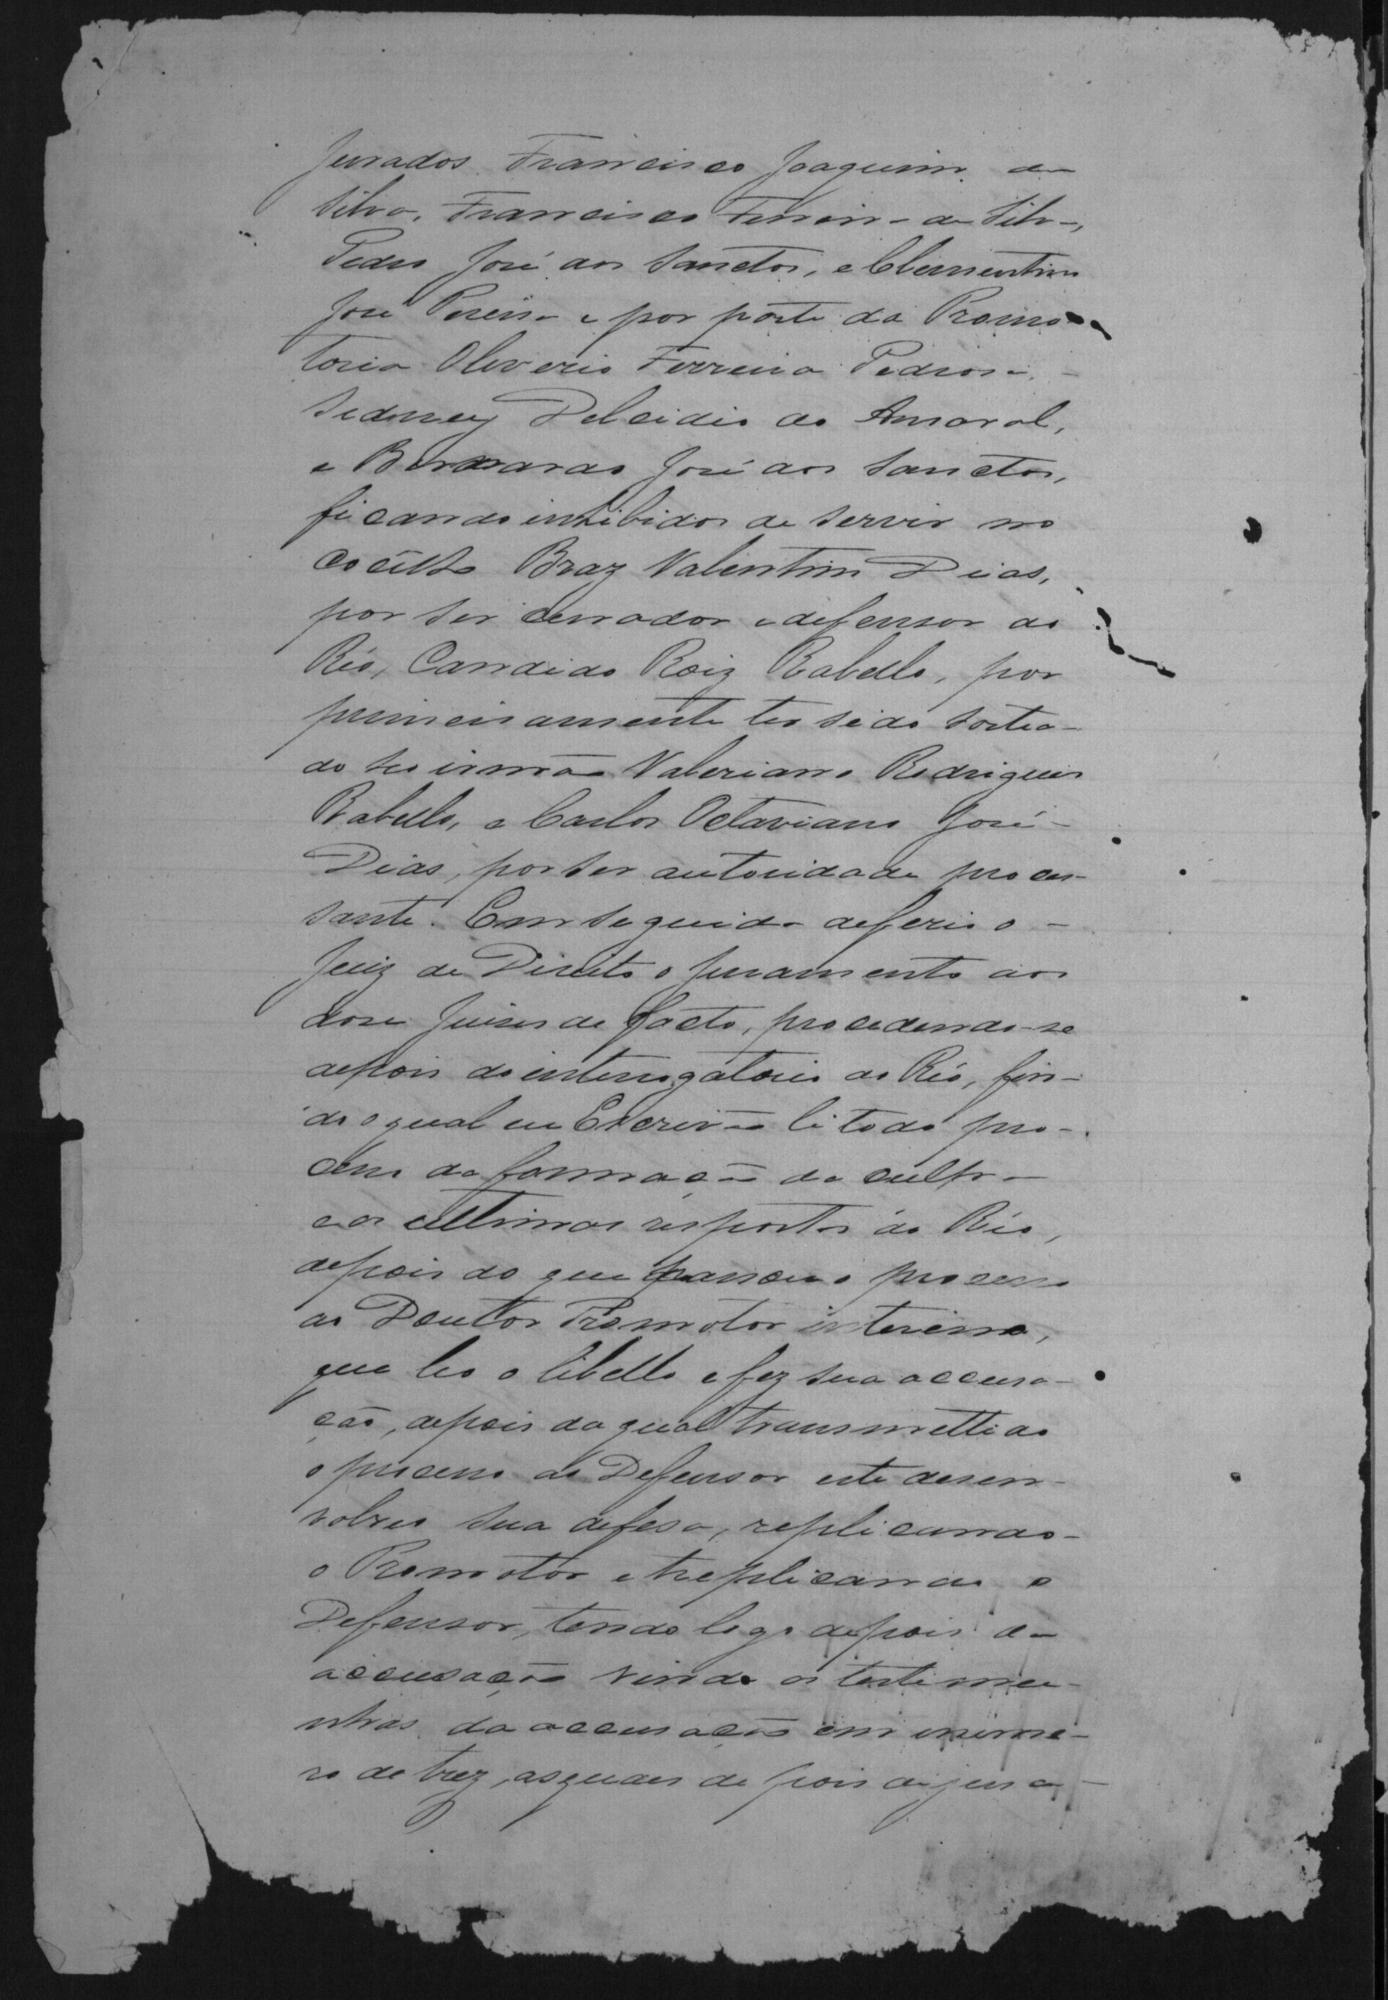 Jurados Francisco Joaquim da
Silva, Francisco Ferreira da Silva,
Pedro José dos Sanctos, e Clementino
José Pereira e por parte da Promo
toria Oliverio Ferreira Pedrosa,
Sidney Delcidio do Amaral,
e Bernardo José dos Sanctos,
ficando inhibidos de servir no
Braz Valentim Dias,
por ser curador e defensor do
Réo, Candido Roiz Rabello, por
primeiramente ter sido sortea-
do seo irmão Valeriano Rodrigues
Rabello, e Carlos Octaviano José
Dias, por ser autoridade proces-
sante. Em seguida deferio o
Juiz de Direito o juramento aos
dose Juises de facto, procedendo-se
depois do interrogatorio ao Réo, fin-
do o qual eu Escrivão li todo pro-
cesso da formação da culpa
e as ultimas respostas do Réo,
depois do que passou o processo
ao Doutor Promotor interino,
que leo o libello e fez sua accusa-
ção, depois da qual transmettido
o processo ao Defensor este desen-
volveo sua defesa, replicando
o Promotor e treplicando o
Defensor, tendo logo depois da
accusação vindo as testemu-
nhas da accusação em nume-
ro de trez, as quaes depois de jura-